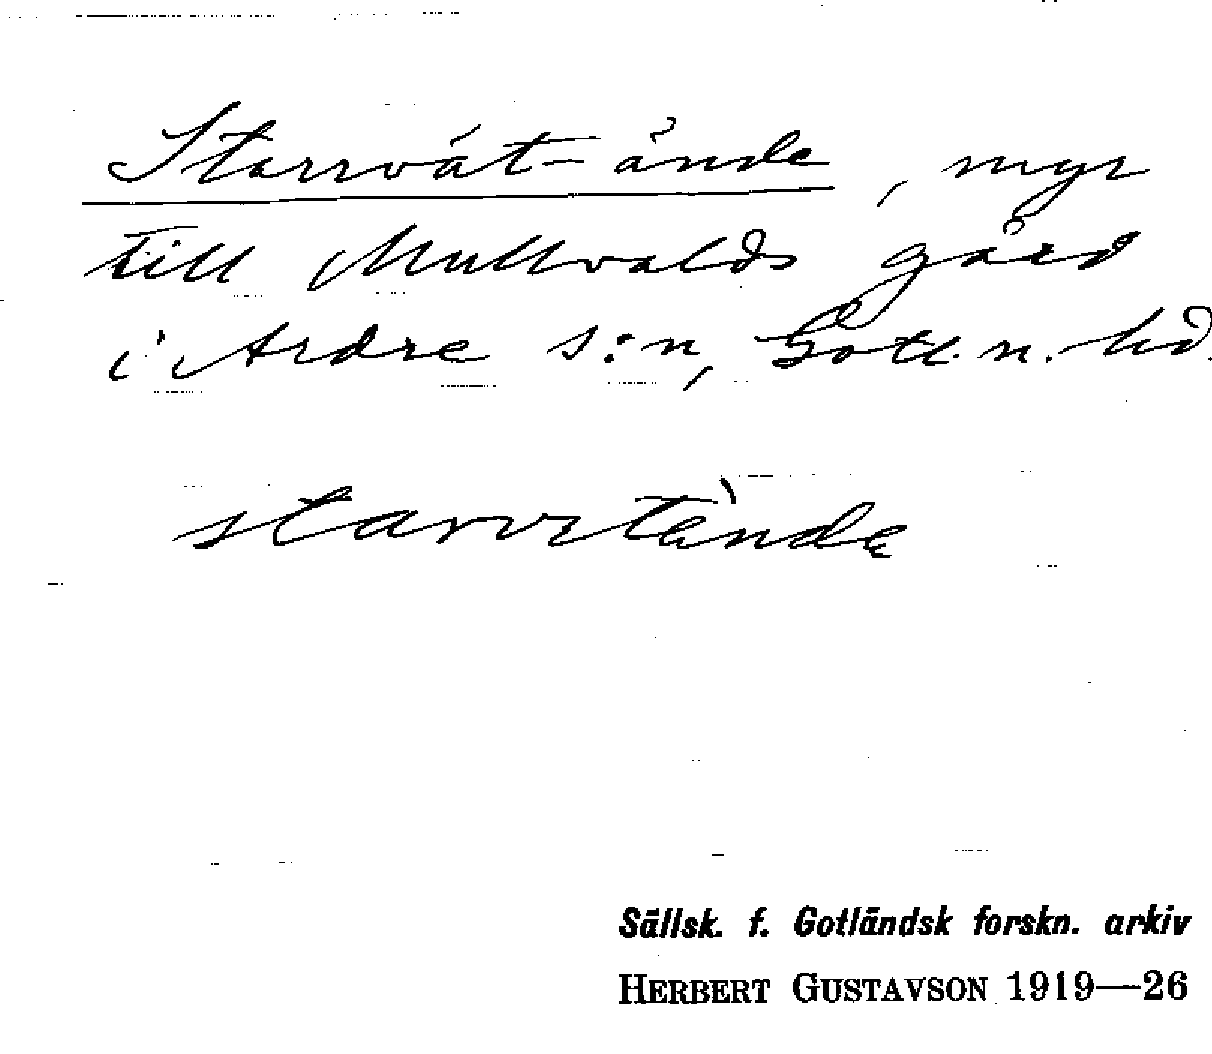 Starrvät-ände, myr
till Mullvalds gård
i Ardre s:n, Gotl. n. hd.
starvtände
Sällsk. f. Gotländsk forskn. arkiv
HERBERT GUSTAVSON 1919—26